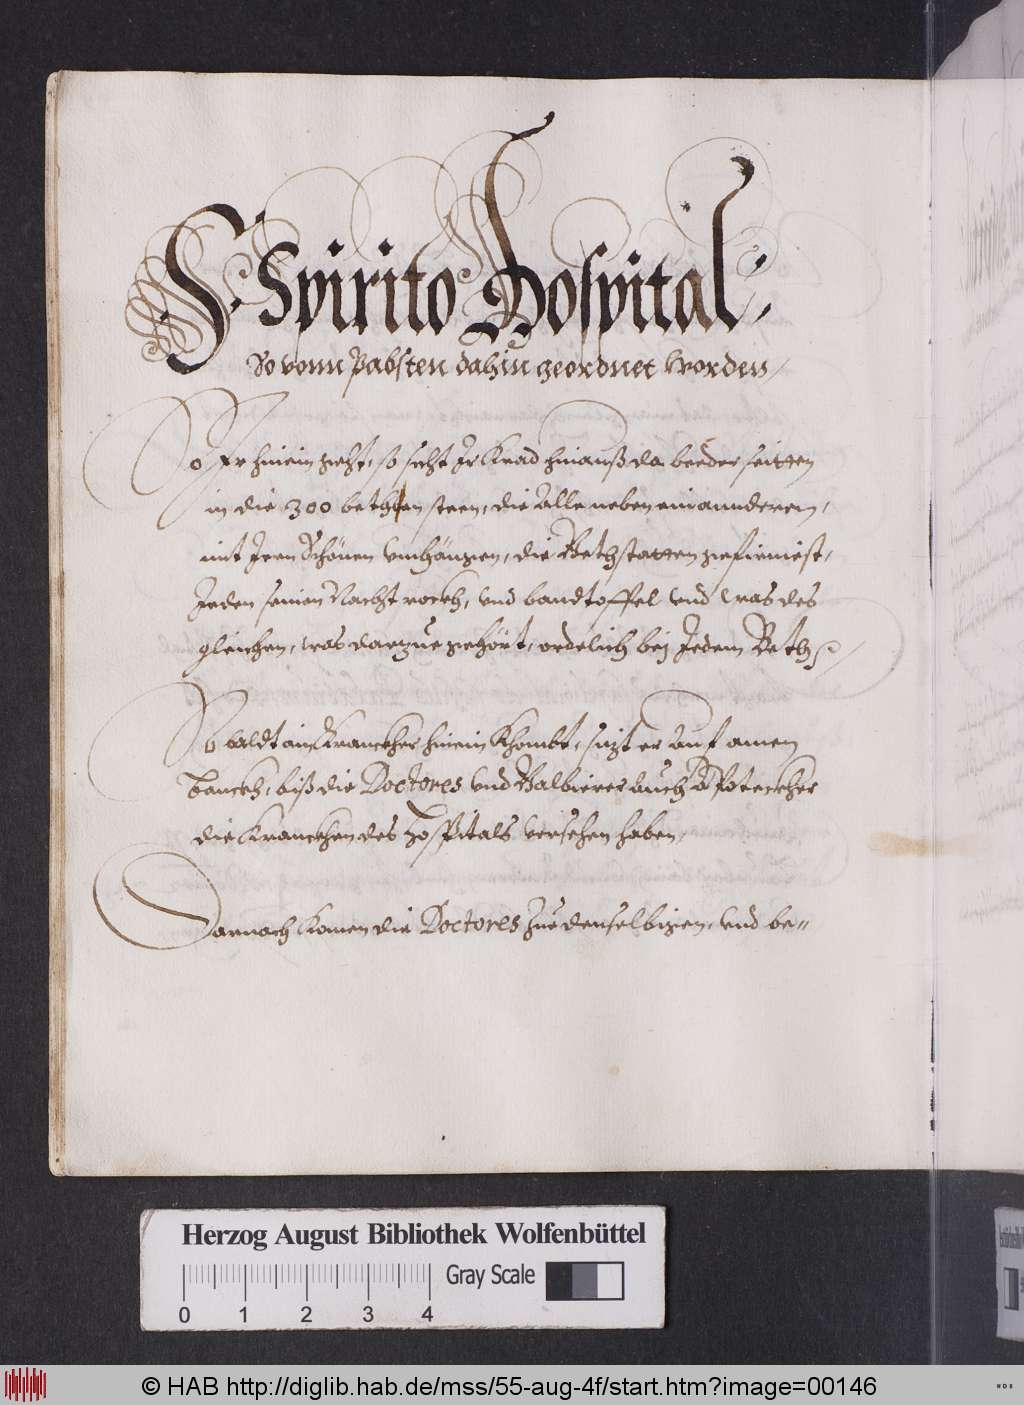 S. Spirito Hospital.
So vonn Pabsten dahin geordnet worden/
So Ir hinein geht, so secht Ir grad hinauß da beeder seitten
in die 300 bether steen, die Alle neben einannderen,
mit Iren Schönen vmhängen, die Bethstatten gefirniest,
Jeden seinen Nachtrockh, vnd bandtoffel vnd was des
gleichen, was darzue gehört, ordelich bej Jedem Beth
So baldt ain Kranckher hinein Khombt, sizt er auf ainen
banckh, biß die Doctores vnd Balbierer auch Apoteckher
die Kranckhen des Hospitals versehen haben,
Darnach komen die Doctores zue denselbigen, vnd be=
Herzog August Bibliothek Wolfenbüttel
Gray Scale
0 1 2 3 4
© HAB http://diglib.hab.de/mss/55-aug-4f/start.htm?image=00146